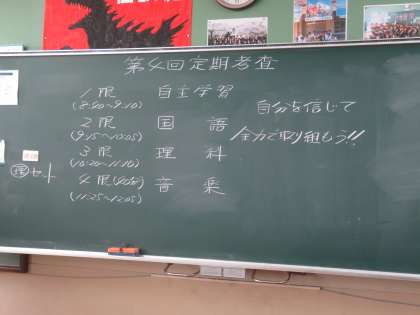 第4回定期考査
1限 自主学習
(8:40~9:10)
2限 国語
(9:15~10:05)
3限 理科
(10:20~11:10)
4限(40分) 音楽
(11:25~12:05)
自分を信じて
全力で取り組もう!!
セット